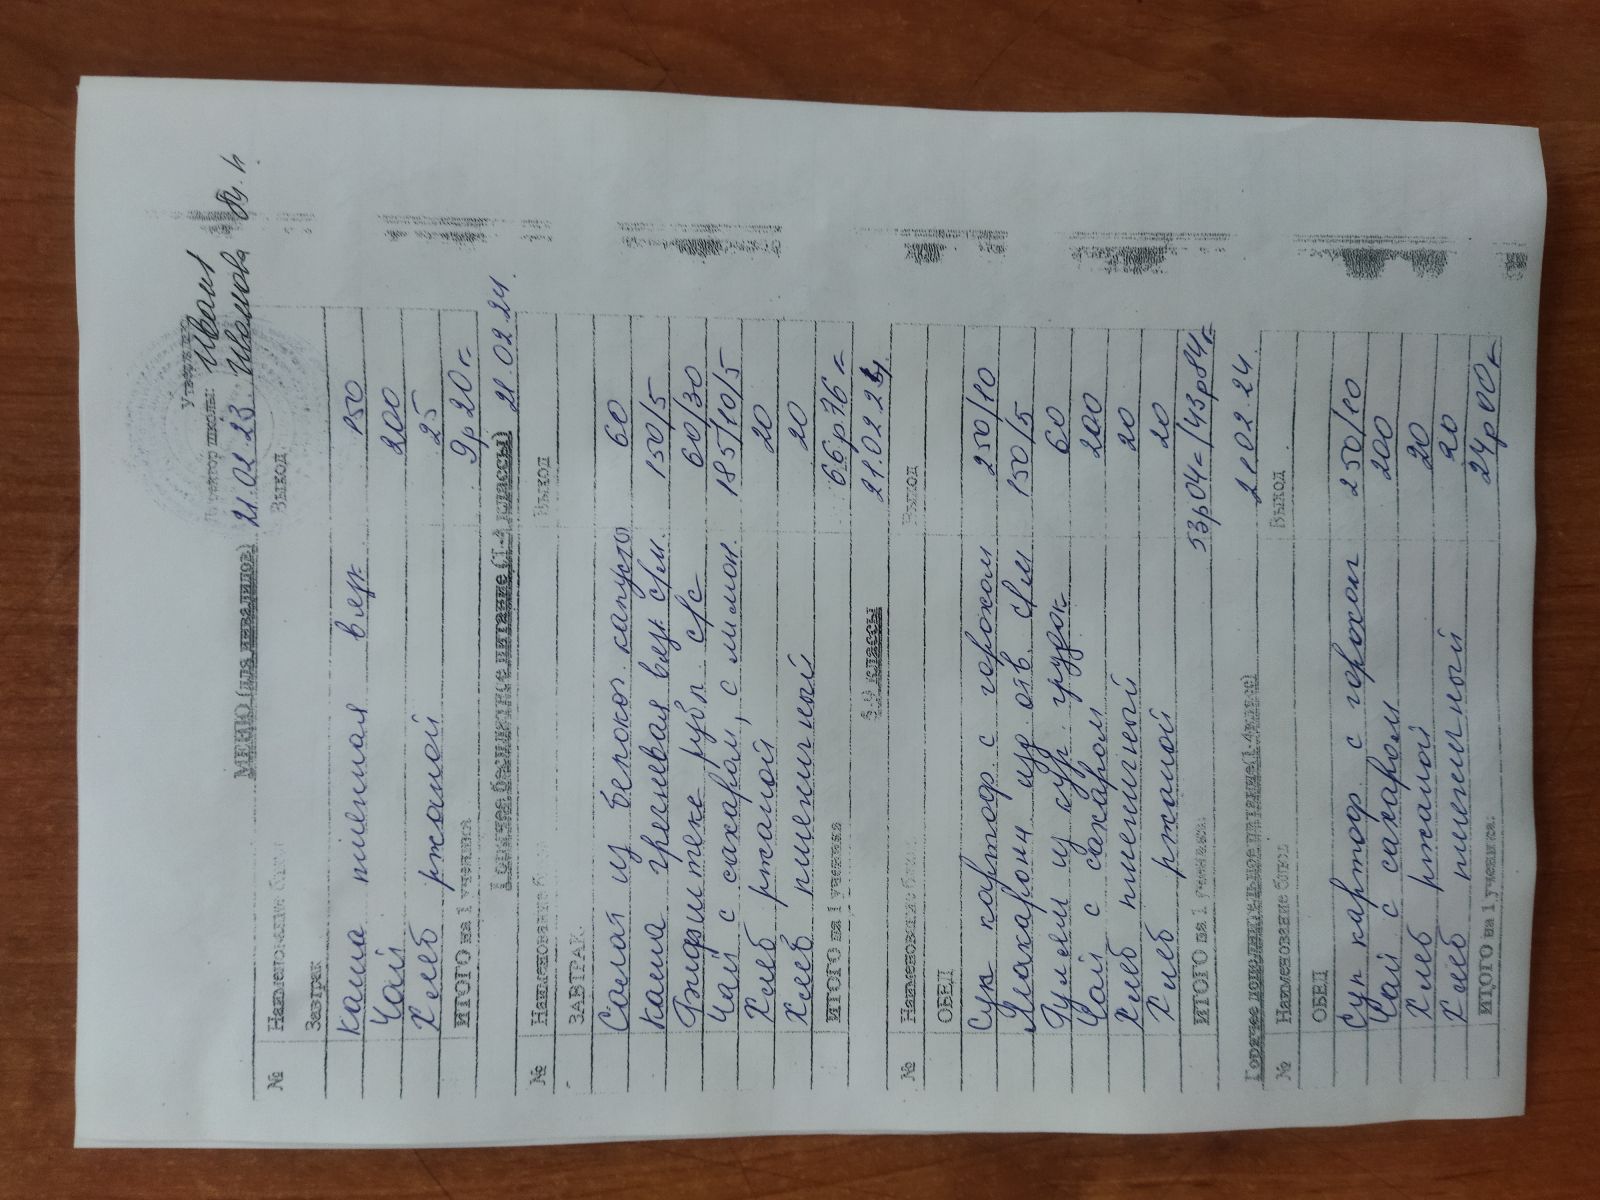 Утверждаю
Директор школы: Иванов
Иванова
МЕНЮ (для инвалидов) 21.02.23
№ Наименование блюд Выход
Завтрак
Каша пшенная вязк 150
Чай 200
Хлеб ржаной 25
ИТОГО на 1 ученика 9р 20к
Горячее бесплатное питание (1-4 классы) 21.02.24.
№ Наименование блюд Выход
ЗАВТРАК
Салат из белокоч. капусты 60
Каша гречневая вязк с/м. 150/5
Бифштекс рубл. с/с 60/30
Чай с сахаром, с лимон. 185/10/5
Хлеб ржаной 20
Хлеб пшеничный 20
ИТОГО на 1 ученика 66р 76к
5-9 классы 21.02.24.
№ Наименование блюд Выход
ОБЕД
Суп картоф. с горохом 250/10
Макароны изд отв с/м 150/5
из кур. грудок 60
Чай с сахаром 200
Хлеб пшеничный 20
Хлеб ржаной 20
ИТОГО на 1 ученика: 53р04к/43р84к
Горячее дополнительное питание (1-4 класс) 21.02.24.
№ Наименование блюд Выход
ОБЕД
Суп картоф. с горохом 250/10
Чай с сахаром 200
Хлеб ржаной 20
Хлеб пшеничный 20
ИТОГО на 1 ученика: 24р00к